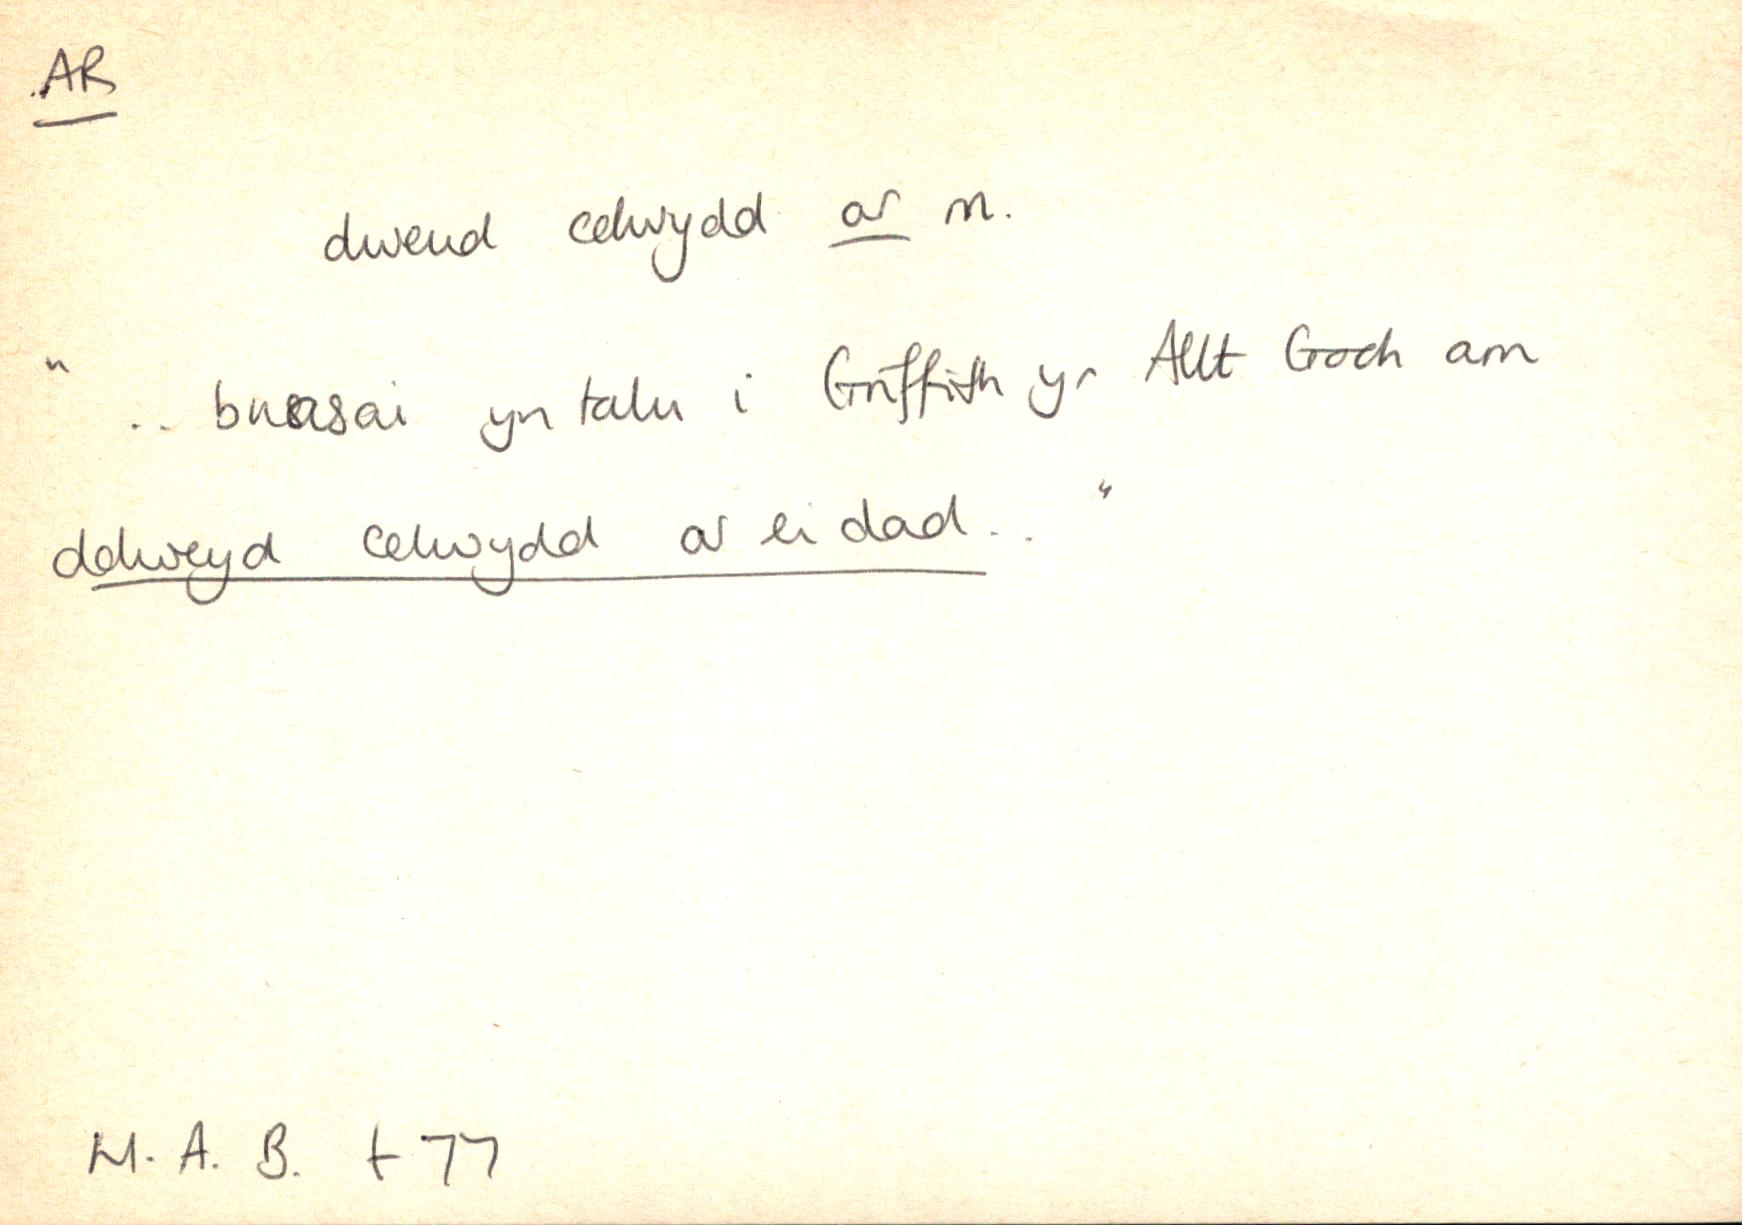 AR
dweud celwydd ar rn.
" .. buasai yn talu i Griffith yr Allt Goch am
ddweyd celwydd ar ei dad .. "
M.A.B. t 77